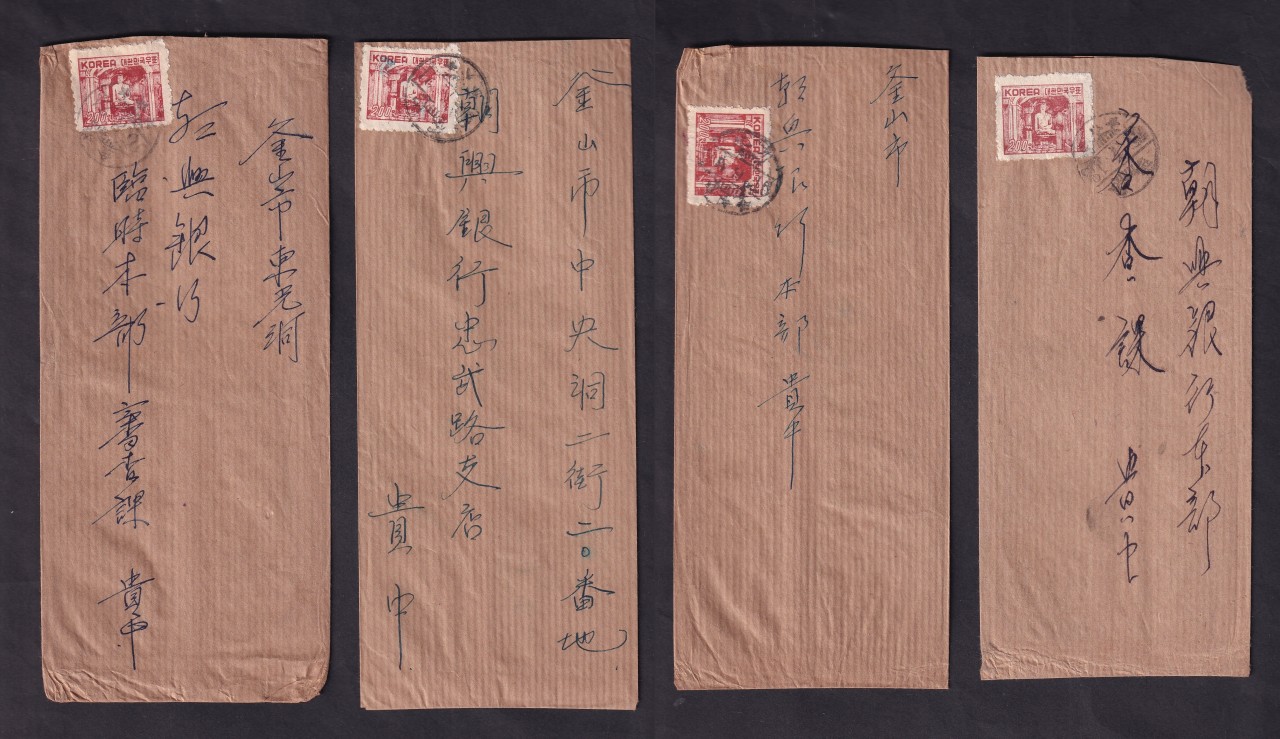 KOREA 대한민국우표
200
釜山市東光洞
朝興銀行
臨時本部 審査課 貴中
KOREA 대한민국우표
200
釜山市中央洞二街二〇番地
朝興銀行忠武路支店
貴中
KOREA
釜山市
朝興銀行本部 貴中
KOREA 대한민국우표
200
朝興銀行本部
審査課 貴中